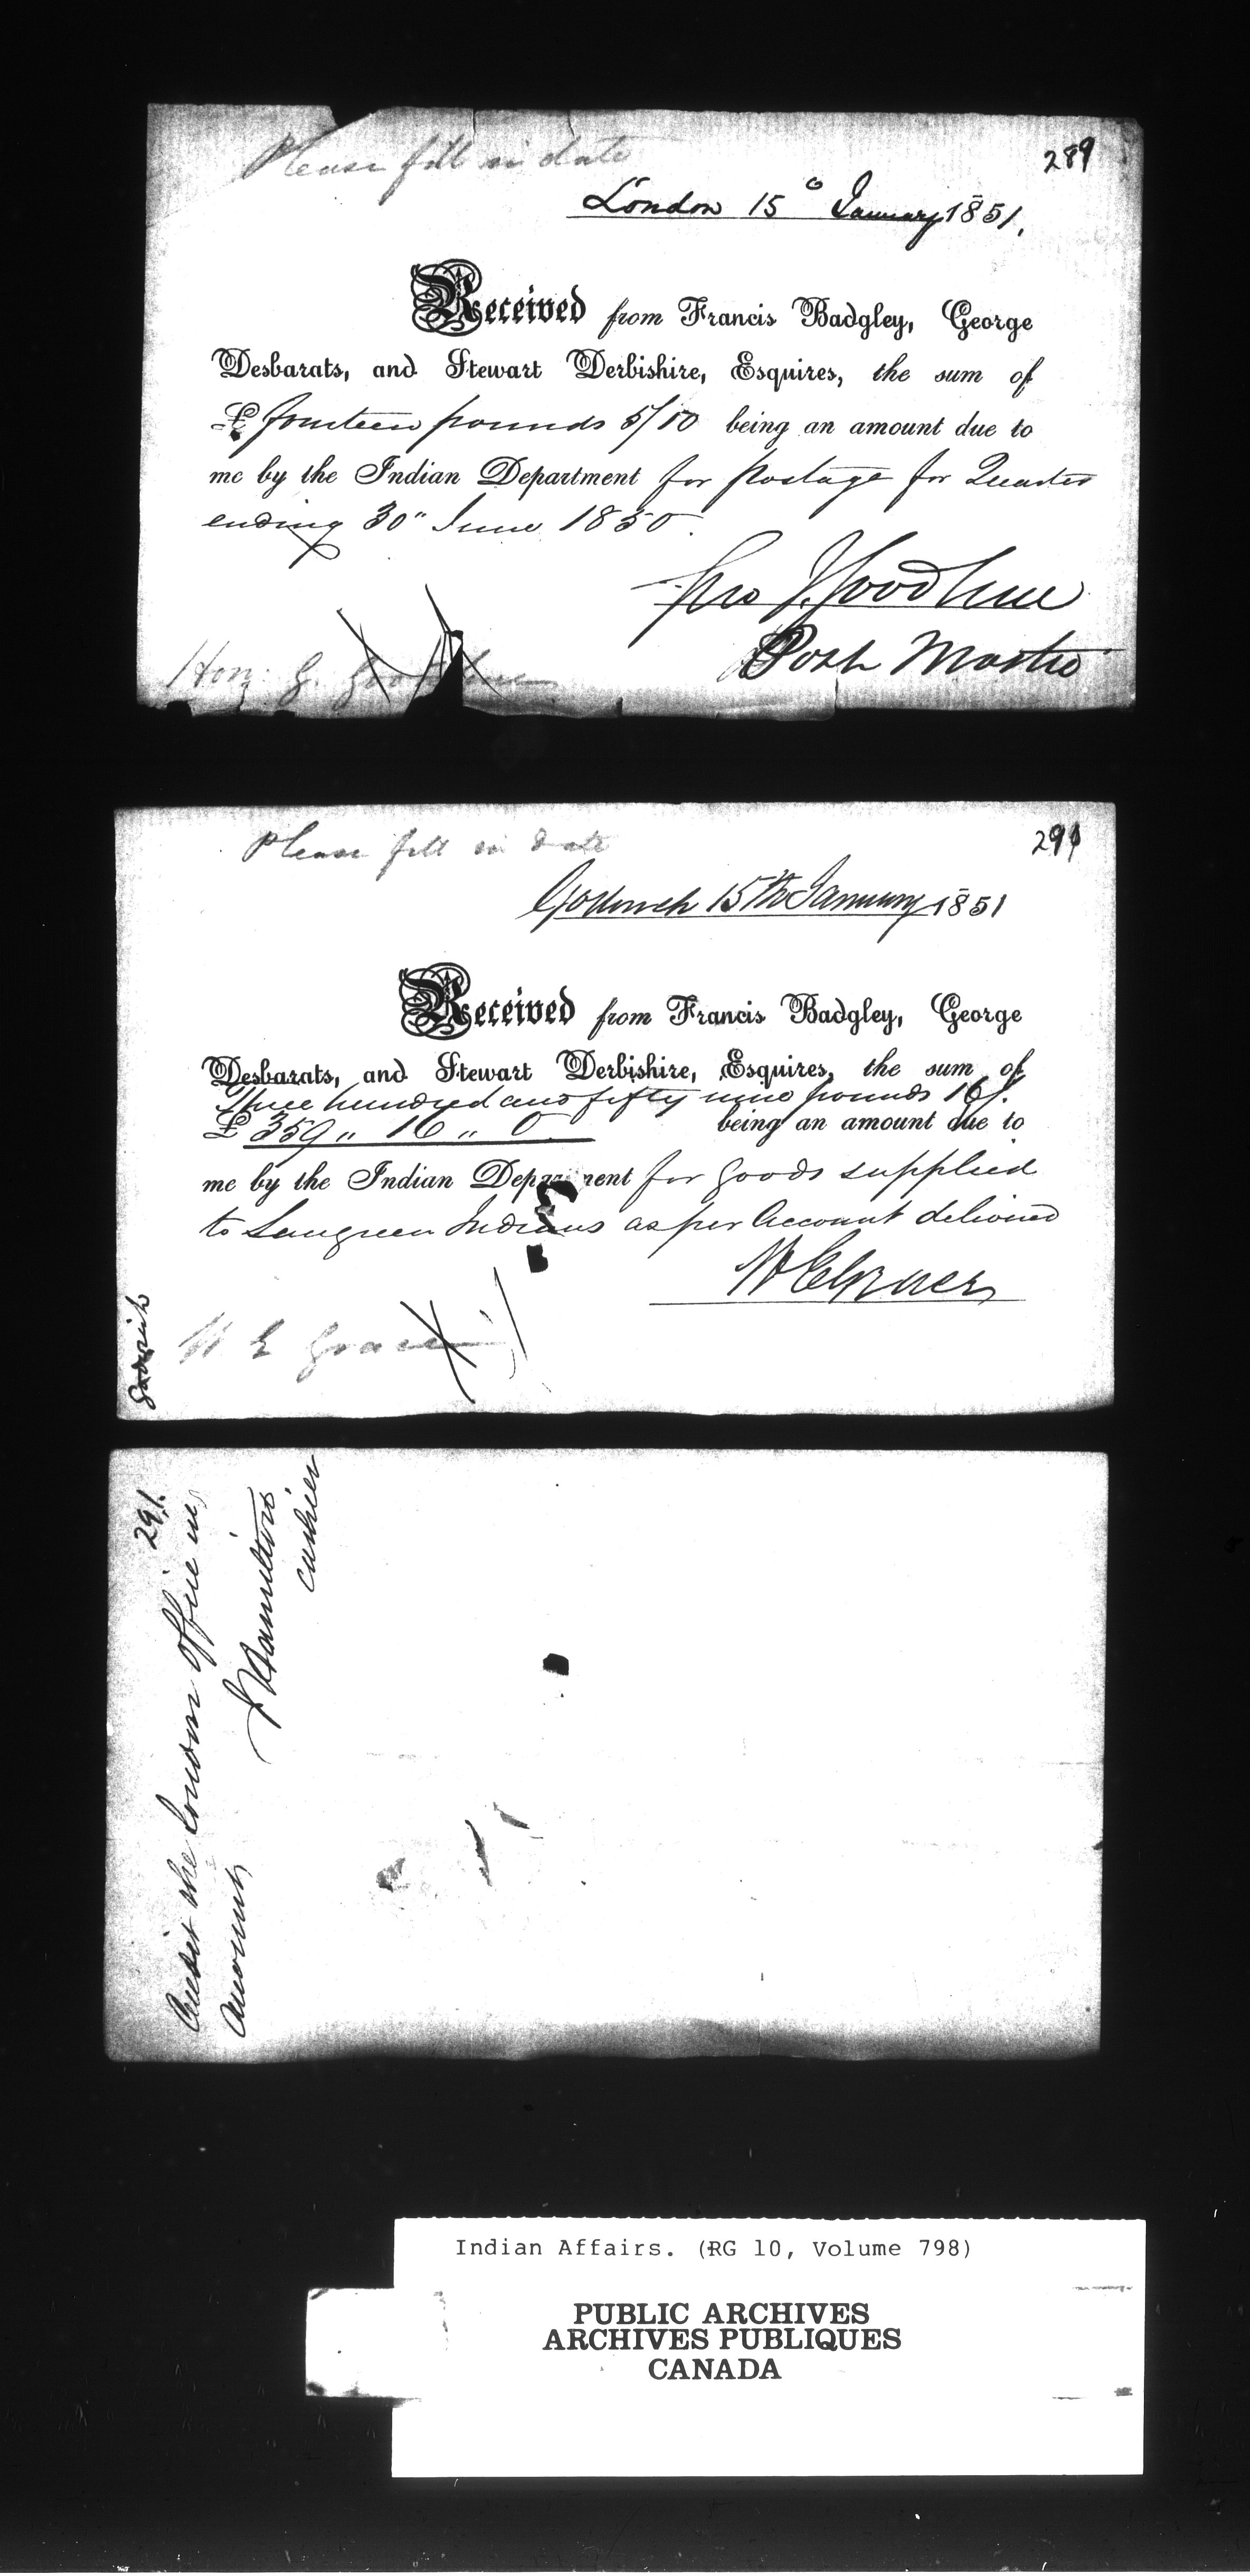 Please fill in date
289
London 15° January 1851.
Received from Francis Badgley, George
Desbarats, and Stewart Derbishire, Esquires, the sum of
£ fourteen pounds 5/10 being an amount due to
me by the Indian Department for postage for Quarter
ending 30" June 1850.
Post Master
Hon: G.
Please fill in date
291
Goderich 15th January 1851
Received from Francis Badgley, George
Desbarats, and Stewart Derbishire, Esquires, the sum of
three hundred and fifty nine pounds 16/.
£ 359 " 16 " 0 being an amount due to
me by the Indian Department for goods supplied
to Saugeen Indians as per Account delivered
W E Grace
W E Grace
Goderich
291.
Credit the London Office in
Account
Hamilton
cashier
Indian Affairs. (RG 10, Volume 798)
PUBLIC ARCHIVES
ARCHIVES PUBLIQUES
CANADA